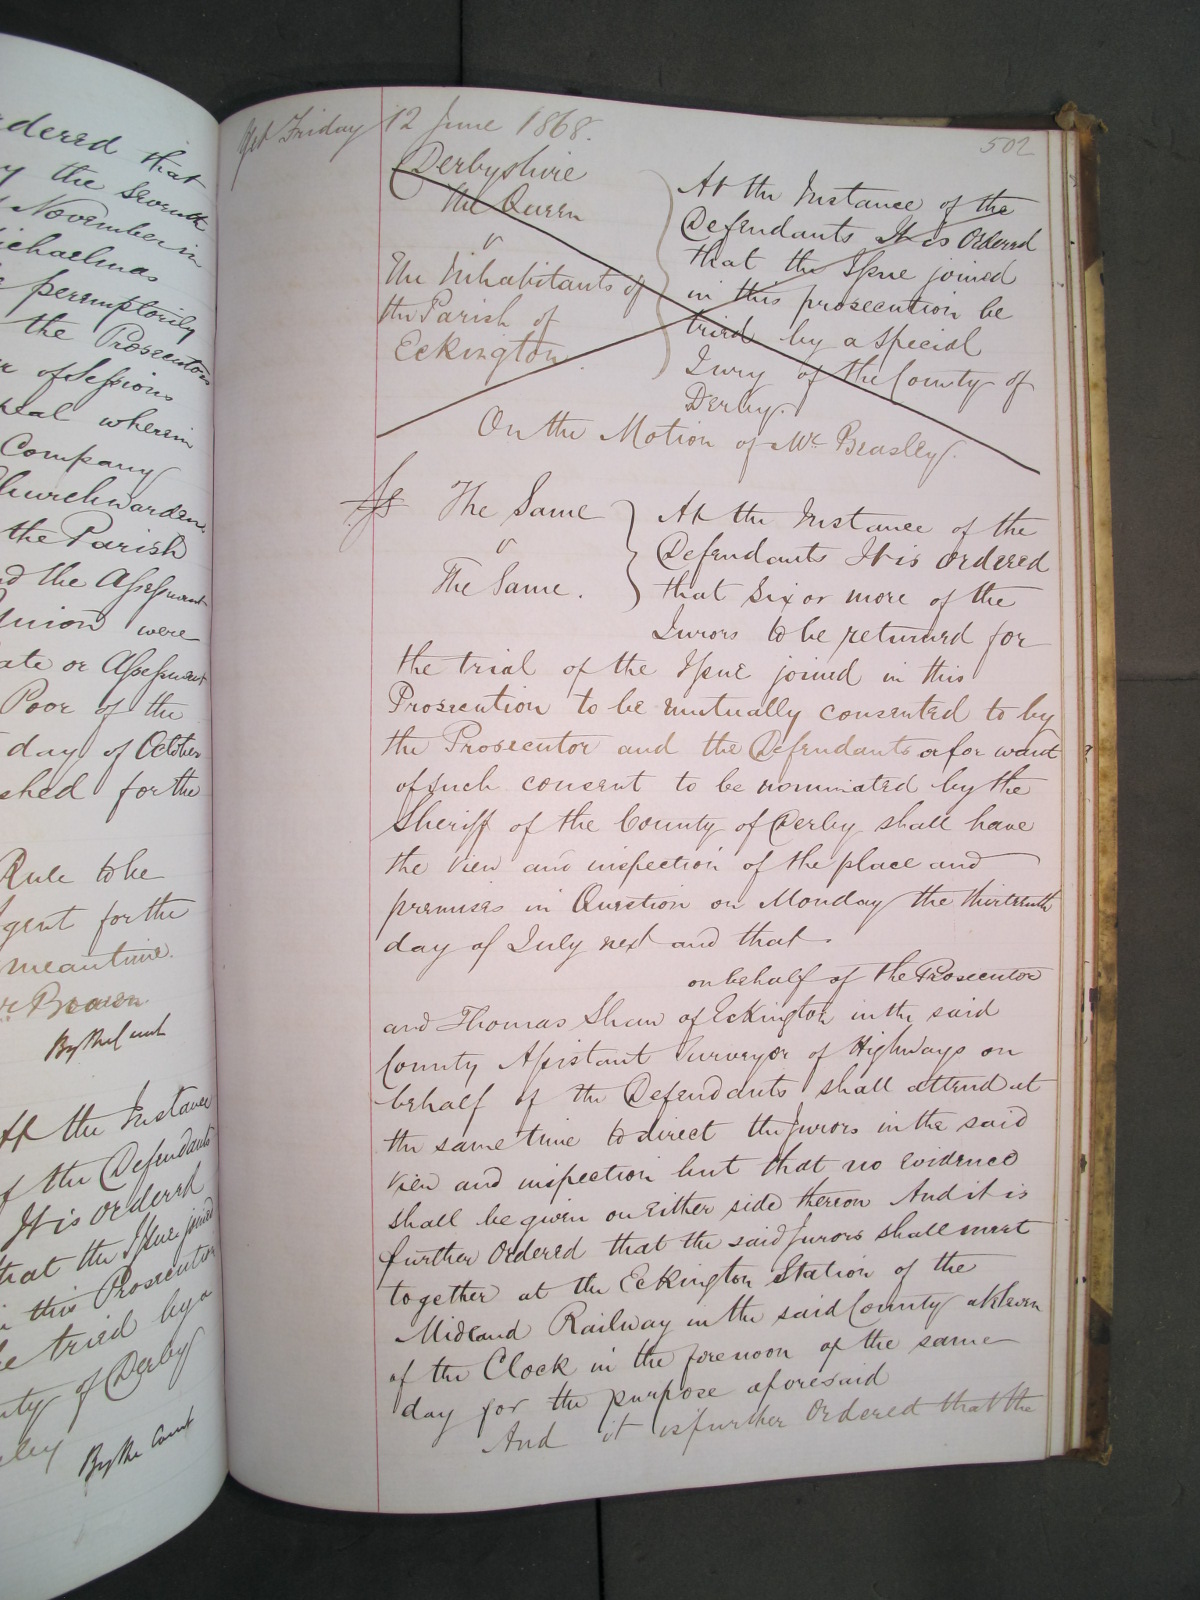 dered that
the seventh
November in
ichaelmas
peremptorily
the Prosecutors
of Sessions
wherein
Company
Churchwardens
the Parish
the Assessment
Union were
ate or Assessment
Poor of the
day of October
shed for the
Rule to be
gent for the
meantime.
By the Court
At the Instance
of the Defendants
It is ordered
that the Issue joined
in this Prosecution
be tried by a
nty of Derby
By the Court
Yet Friday 12 June 1868.
502
Derbyshire
The Queen
v
The Inhabitants of
the Parish of
Eckington
At the Instance of the
Defendants It is Ordered
that the Issue joined
in this prosecution be
tried by a Special
Jury of the County of
Derby.
On the Motion of Mr. Beasley.
The Same
v
The Same.
At the Instance of the
Defendants It is ordered
that Six or more of the
Jurors to be returned for
the trial of the Issue joined in this
Prosecution to be mutually consented to by
the Prosecutor and the Defendants or for want
of such consent to be nominated by the
Sheriff of the County of Derby shall have
the view and inspection of the place and
premises in Question on Monday the thirteenth
day of July next and that
on behalf of the Prosecutor
and Thomas Shaw of Eckington in the said
County Assistant Surveyor of Highways on
behalf of the Defendants shall attend at
the same time to direct the Jurors in the said
view and inspection but that no evidence
shall be given on either side thereon And it is
further Ordered that the said Jurors shall meet
together at the Eckington Station of the
Midland Railway in the said County at eleven
of the Clock in the forenoon of the same
day for the purpose aforesaid
And it is further Ordered that the